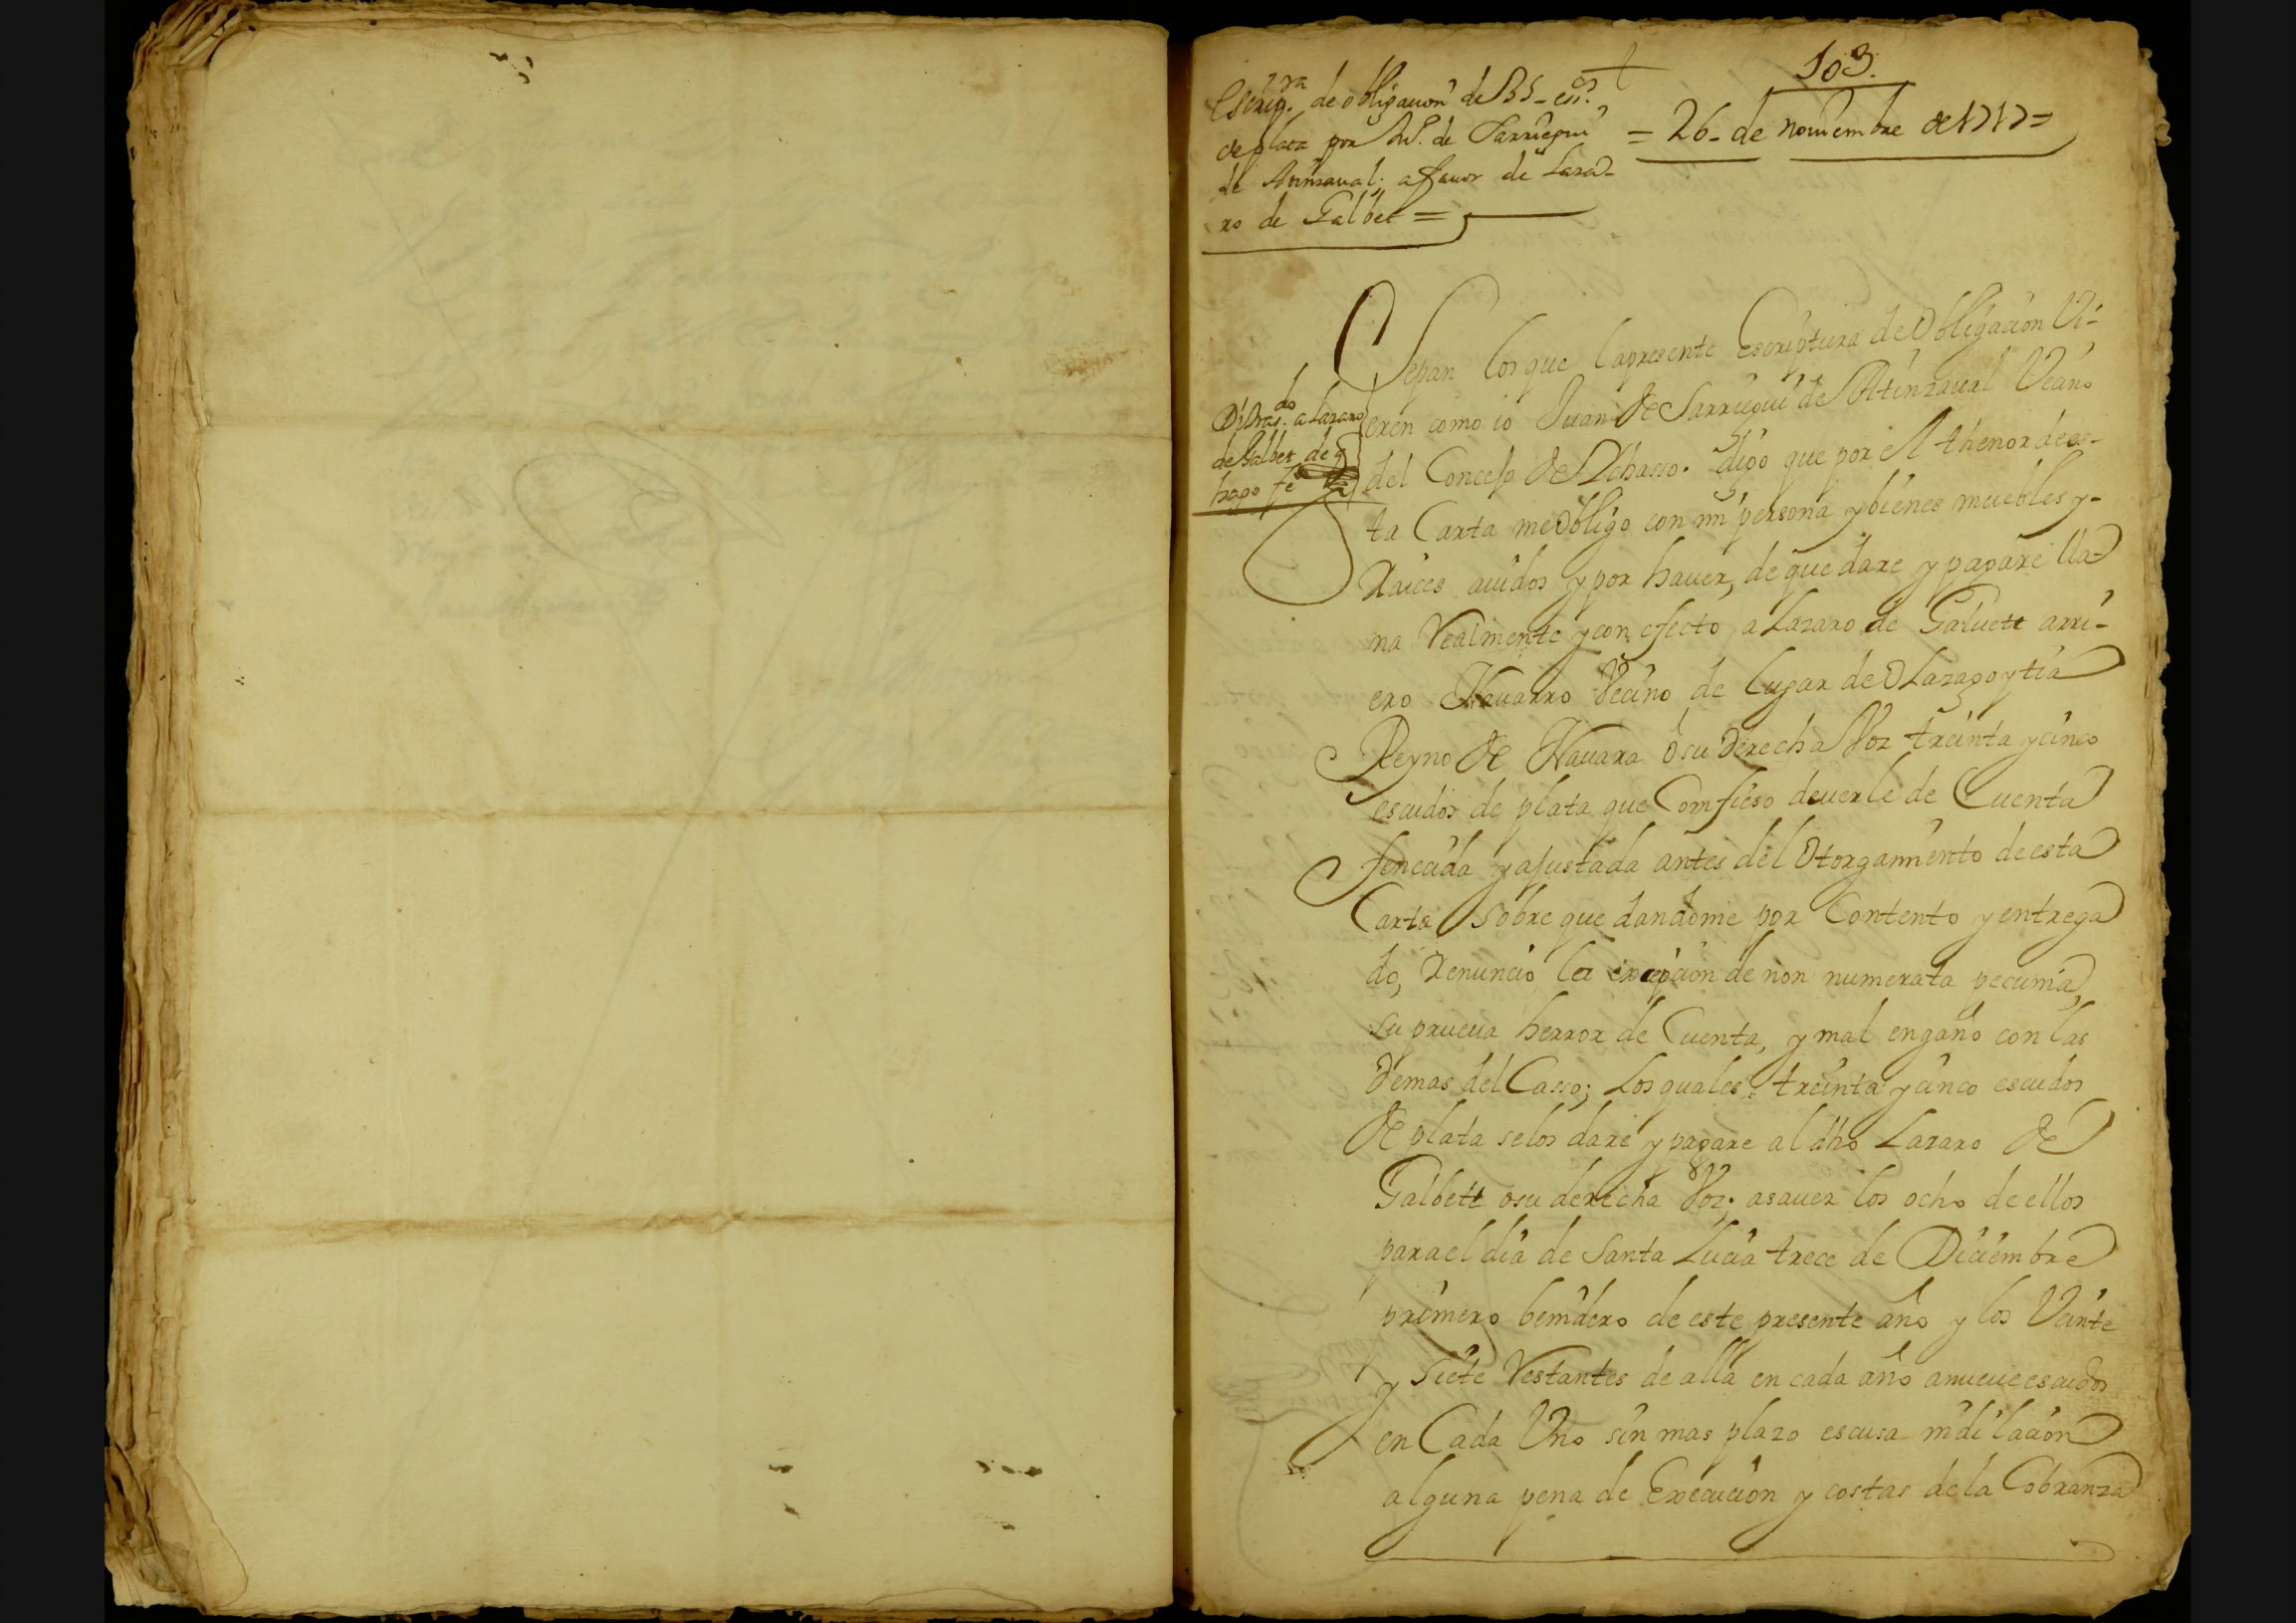 103.
Escrip.ra de obligacion de 35_ es.os
de plata por Ju.o de Sarriegui
de Atinzaval. a favor de Laza-
ro de Galbet =
= 26_ de noviembre de 1717 =
Sepan los que la presente escriptura de Obligacion Vi-
eren como io Juan de Sarriegui de Atinzaual Vecino
del Concejo de Ichasso. digo que por el thenor de es-
ta Carta me Obligo con mi persona y bienes muebles y-
Raices auidos y por hauer, de que dare y pagare lla-
na Realmente y con efecto a Lazaro de Galuett arri-
ero Nauarro Vecino de lugar de Olazagoytia
Reyno de Nauara o su derecha Voz treinta y cinco
escudos de plata que Comfieso deuerle de Cuenta
fenecida y ajustada antes del Otorgamiento de esta
Carta Sobre que dandome por Contento y entrega
do, Renuncio la excepcion de non numerata pecunia,
su prueua herror de Cuenta, y mal engaño con las
demas del Casso; Los quales treinta y cinco escudos
de plata se los dare y pagare al dho Lazaro de
Galbett o su derecha Voz; asauer los ocho de ellos
para el dia de Santa Lucia trece de Diciembre
primero benidero de este presente año y los Veinte
y Siete Restantes de alla en cada año a nueue escudos
en Cada Uno sin mas plazo escusa ni dilacion
alguna pena de Execucion y costas de la Cobranza
Di tras.do a Lazaro
de Galbet de q
hago fe